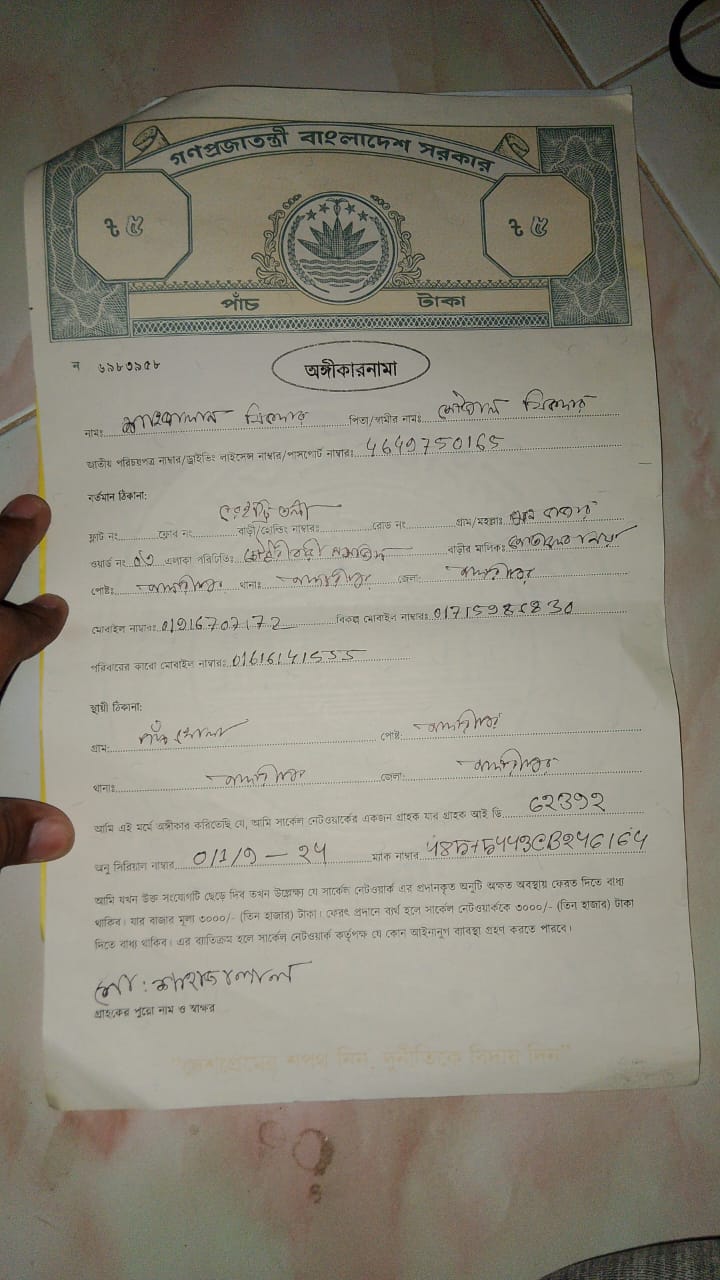 গণপ্রজাতন্ত্রী বাংলাদেশ সরকার
৳ ৫ ৳ ৫
পাঁচ টাকা
ন ৬৯৮৩৯৫৮
অঙ্গীকারনামা
নামঃ পিতা/স্বামীর নামঃ
জাতীয় পরিচয়পত্র নাম্বার/ড্রাইভিং লাইসেন্স নাম্বার/পাসপোর্ট নাম্বারঃ 4649750165
বর্তমান ঠিকানা:
ফ্লাট নং ফ্লোর নং বাড়ী/হোল্ডিং নাম্বারঃ রোড নং গ্রাম/মহল্লাঃ
ওয়ার্ড নং ০৩ এলাকা পরিচিতিঃ বাড়ীর মালিকঃ
পোষ্টঃ মাদারীপুর থানাঃ মাদারীপুর জেলা: মাদারীপুর
মোবাইল নাম্বারঃ 01916707172 বিকল্প মোবাইল নাম্বারঃ
পরিবারের কারো মোবাইল নাম্বারঃ 01616141555
স্থায়ী ঠিকানা:
গ্রাম: পোষ্ট: মাদারীপুর
থানাঃ মাদারীপুর জেলা: মাদারীপুর
আমি এই মর্মে অঙ্গীকার করিতেছি যে, আমি সার্কেল নেটওয়ার্কের একজন গ্রাহক যার গ্রাহক আই ডি
অনু সিরিয়াল নাম্বার 0/1/9 – 24 ম্যাক নাম্বার
আমি যখন উক্ত সংযোগটি ছেড়ে দিব তখন উল্লেক্ষ্য যে সার্কেল নেটওয়ার্ক এর প্রদানকৃত অনুটি অক্ষত অবস্থায় ফেরত দিতে বাধ্য
থাকিব। যার বাজার মূল্য ৩০০০/- (তিন হাজার) টাকা। ফেরৎ প্রদানে ব্যর্থ হলে সার্কেল নেটওয়ার্ককে ৩০০০/- (তিন হাজার) টাকা
দিতে বাধ্য থাকিব। এর ব্যতিক্রম হলে সার্কেল নেটওয়ার্ক কর্তৃপক্ষ যে কোন আইনানুগ ব্যবস্থা গ্রহণ করতে পারবে।
মো: শাহজালাল
গ্রাহকের পুরো নাম ও স্বাক্ষর
"দেশপ্রেমের শপথ নিন, দুর্নীতিকে বিদায় দিন"